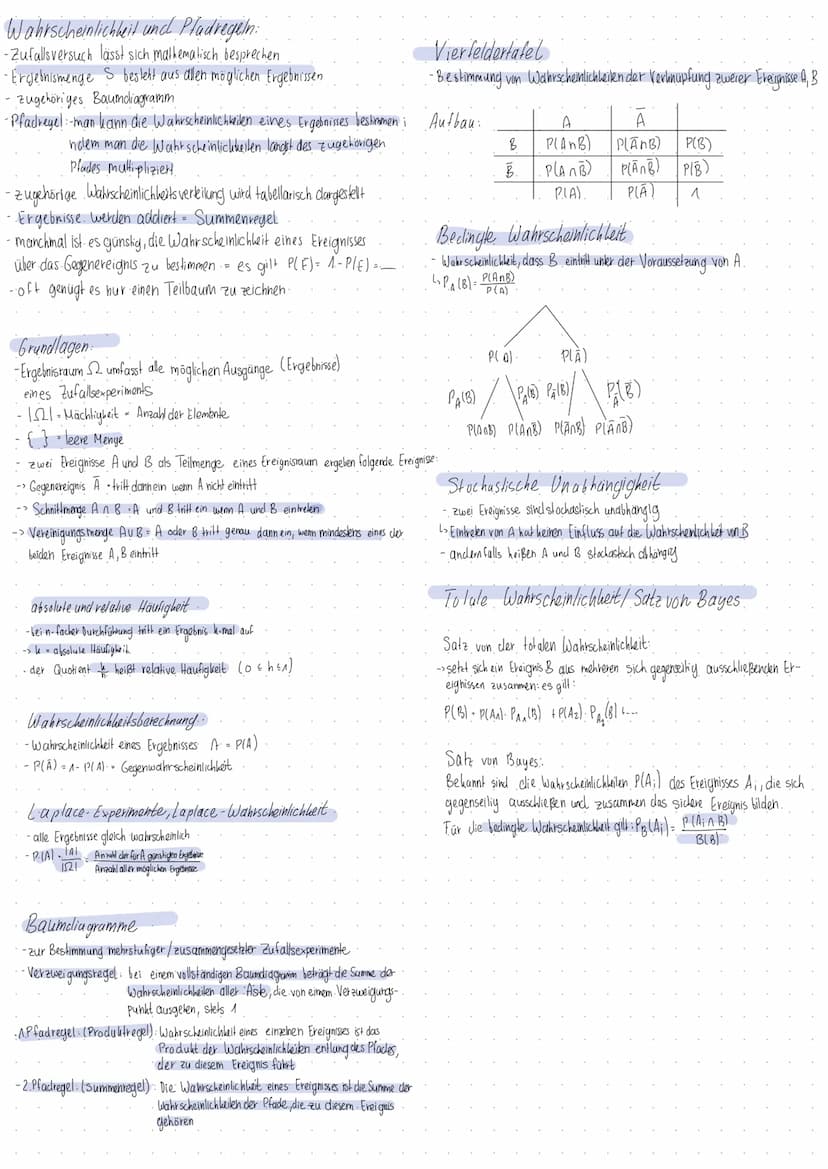 Wahrscheinlichkeit und Pfadregeln:
- Zufallsversuch lässt sich mathematisch besprechen
- Ergebnismenge S besteht aus allen möglichen Ergebnissen
- zugehöriges Baumdiagramm
- Pfadregel: - man kann die Wahrscheinlichkeiten eines Ergebnisses bestimmen i
ndem man die Wahrscheinlichkeiten längst des zugehörigen
Pfades multipliziert
- zugehörige Wahrscheinlichkeitsverteilung wird tabellarisch dargestellt
- Ergebnisse werden addiert = Summenregel
- manchmal ist es günstig, die Wahrscheinlichkeit eines Ereignisses
über das Gegenereignis zu bestimmen = es gilt P(E) = 1 - P(E) = __
- oft genügt es nur einen Teilbaum zu zeichnen
Grundlagen:
- Ergebnisraum Ω umfasst alle möglichen Ausgänge (Ergebnisse)
eines Zufallsexperiments
- |Ω| = Mächtigkeit = Anzahl der Elemente
- { } = leere Menge
- zwei Ereignisse A und B als Teilmenge eines Ereignisraum ergeben folgende Ereignise:
-> Gegenereignis Ā = tritt dann ein wenn A nicht eintritt
-> Schnittmenge A ∩ B = A und B tritt ein wenn A und B eintreten
-> Vereinigungsmenge A∪B = A oder B tritt genau dann ein, wenn mindestens eines der
beiden Ereignisse A, B eintritt
absolute und relative Häufigkeit
- bei n-facher Durchführung tritt ein Ergebnis k-mal auf
-> k = absolute Häufigkeit
- der Quotient k/n heißt relative Häufigkeit (0 ≤ h ≤ 1)
Wahrscheinlichkeitsberechnung:
- Wahrscheinlichkeit eines Ergebnisses A = P(A)
- P(Ā) = 1 - P(A) = Gegenwahrscheinlichkeit
Laplace-Experimente, Laplace-Wahrscheinlichkeit
- alle Ergebnisse gleich wahrscheinlich
- P(A) = |A| / |Ω| = Anzahl der für A günstigen Ergebnisse / Anzahl aller möglichen Ergebnisse
Baumdiagramme
- zur Bestimmung mehrstufiger / zusammengesetzter Zufallsexperimente
- Verzweigungsregel: bei einem vollständigen Baumdiagramm beträgt die Summe der
Wahrscheinlichkeiten aller Äste, die von einem Verzweigungs-
punkt ausgehen, stets 1
- 1.Pfadregel: (Produktregel): Wahrscheinlichkeit eines einzelnen Ereignisses ist das
Produkt der Wahrscheinlichkeiten entlang des Pfades,
der zu diesem Ereignis führt
- 2.Pfadregel: (Summenregel): Die Wahrscheinlichkeit eines Ereignisses ist die Summe der
Wahrscheinlichkeiten der Pfade, die zu diesem Ereignis
gehören
Vierfeldertafel
- Bestimmung von Wahrscheinlichkeiten der Verknüpfung zweier Ereignisse A, B
Aufbau:
A Ā
B P(A∩B) P(Ā∩B) P(B)
B̄ P(A∩B̄) P(Ā∩B̄) P(B̄)
P(A) P(Ā) 1
Bedingte Wahrscheinlichkeit
- Wahrscheinlichkeit, dass B eintritt unter der Voraussetzung von A
↳ P_A(B) = P(A∩B) / P(A)
P(A) P(Ā)
P_A(B) P_A(B̄) P_Ā(B) P_Ā(B̄)
P(A∩B) P(A∩B̄) P(Ā∩B) P(Ā∩B̄)
Stochastische Unabhängigkeit
- zwei Ereignisse sind stochastisch unabhängig
↳ Eintreten von A hat keinen Einfluss auf die Wahrscheinlichkeit von B
- andernfalls heißen A und B stochastisch abhängig
Totale Wahrscheinlichkeit / Satz von Bayes
Satz von der totalen Wahrscheinlichkeit:
-> setzt sich ein Ereignis B aus mehreren sich gegenseitig ausschließenden Er-
eignissen zusammen: es gilt:
P(B) = P(A₁) · P_A₁(B) + P(A₂) · P_A₂(B) + ...
Satz von Bayes:
Bekannt sind die Wahrscheinlichkeiten P(Aᵢ) des Ereignisses Aᵢ, die sich
gegenseitig ausschließen und zusammen das sichere Ereignis bilden.
Für die bedingte Wahrscheinlichkeit gilt: P_B(Aᵢ) = P(Aᵢ∩B) / B(B)